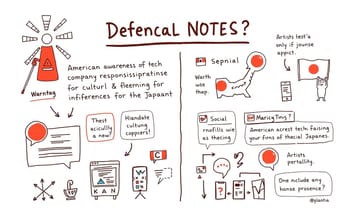 Defencal NOTES?
American awareness of tech
company responsissipratinse
for culturl & fleeming for
infiferences for the Japaant
Warntag
Thest
acicullly
a new
Hlandate
cultung
coppiers!
KAN
C
Sepnial
Worth
wse
thep.
Artists test'a
only if jounse
appict.
Social
rnufills wie
as thecing
Maricy Tins?
American acrest tech: faising
your fins of thecial Japanes.
Artists
pertallity.
One include any
hanse prosence?
@ylantia